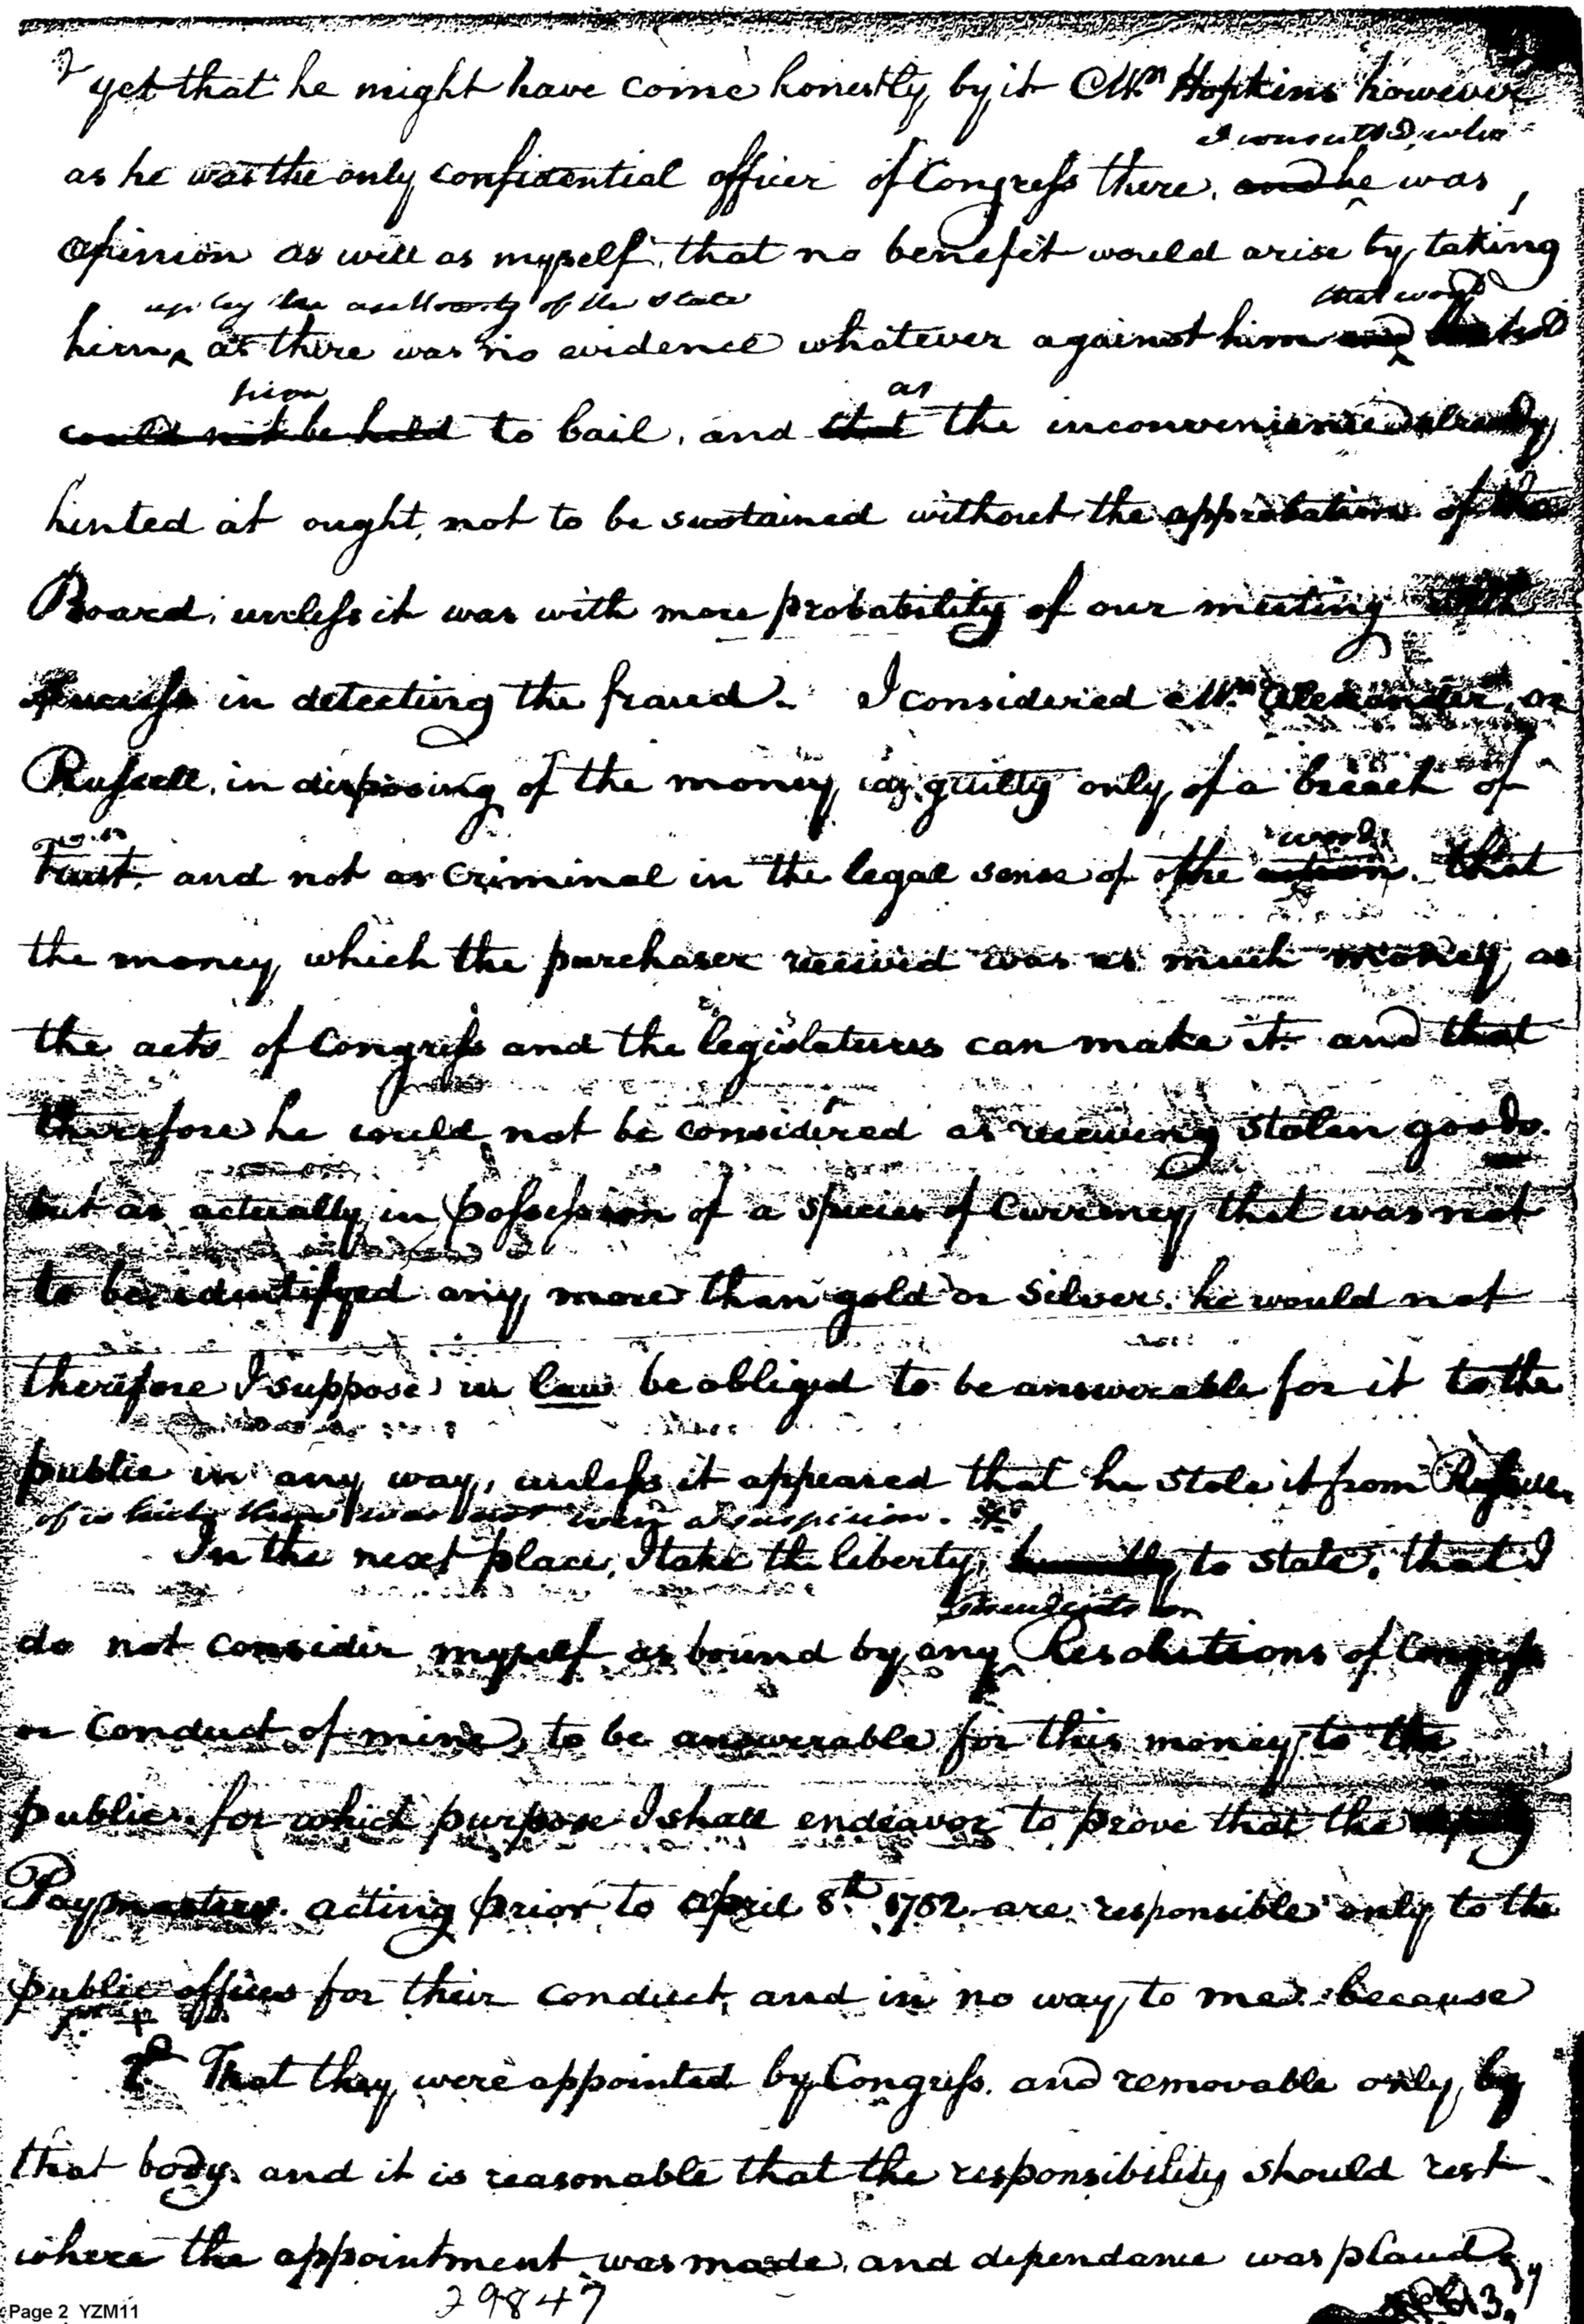 2
yet that he might have come honestly by it Mr. Hopkins however
I consulted, who
as he was the only confidential officer of Congress there, and he was
opinion as well as myself, that no benefit would arise by taking
up by the authority of the State
that would
him, as there was no evidence whatever against him and
him
as
could not be held to bail, and that the inconvenience already
hinted at ought, not to be sustained without the approbation of the
Board, unless it was with more probability of our meeting with
success in detecting the fraud. I considered Mr. Alexander, or
Russell, in disposing of the money, as guilty only of a breach of
word
Trust, and not as criminal in the legal sense of the action. that
the money, which the purchaser received was as much money, as
the acts of Congress and the legislatures can make it. and that
therefore he could not be considered as receiving stolen goods.
but as actually in possession of a species of Currency, that was not
to be identifyed any more than gold or silver. he would not
therefore I suppose in law be obliged to be answerable for it to the
public in any way, unless it appeared that he stole it from Russell,
of which there was not even a suspicion. *
In the next place, I take the liberty, humbly, to state, that I
do not consider myself as bound by any Resolutions of Congress
or Conduct of mine, to be answerable for this money to the
public. for which purpose I shall endeavor to prove that the deputy
Paymasters. acting prior to April 8th. 1782. are responsible only to the
public offices for their conduct, and in no way to me. because
1st That they were appointed by Congress. and removable only by
that body. and it is reasonable that the responsibility should rest
where the appointment was made, and dependance was placed.
29847
Page 2 YZM11